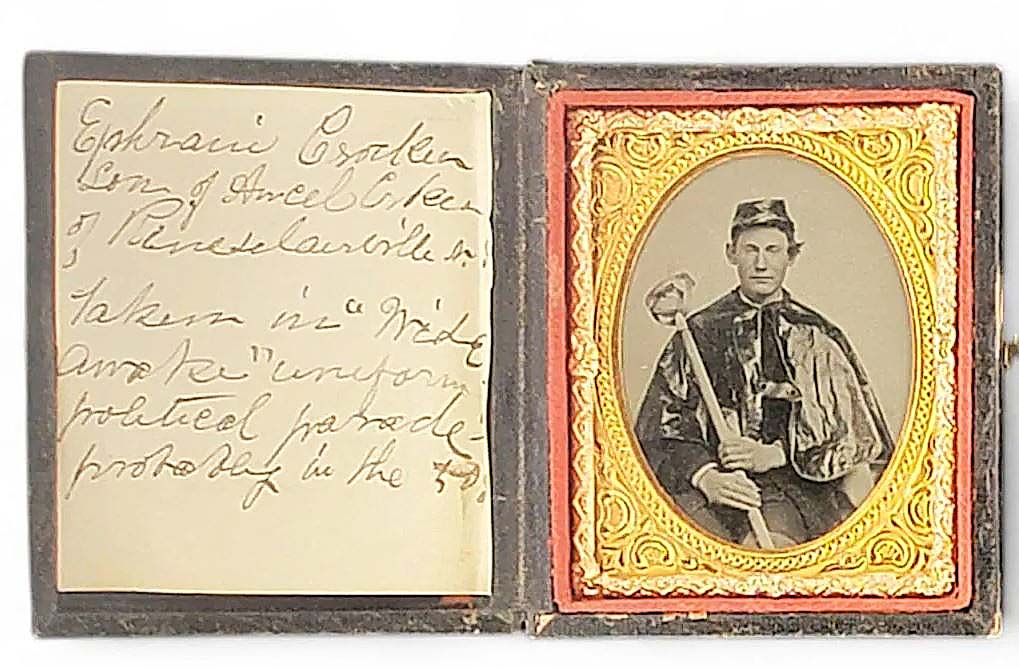 Ephraim Crocker
Son of Ancel
of Rensselaerville
taken in "Wide
awake" uniform
political parade
probably in the